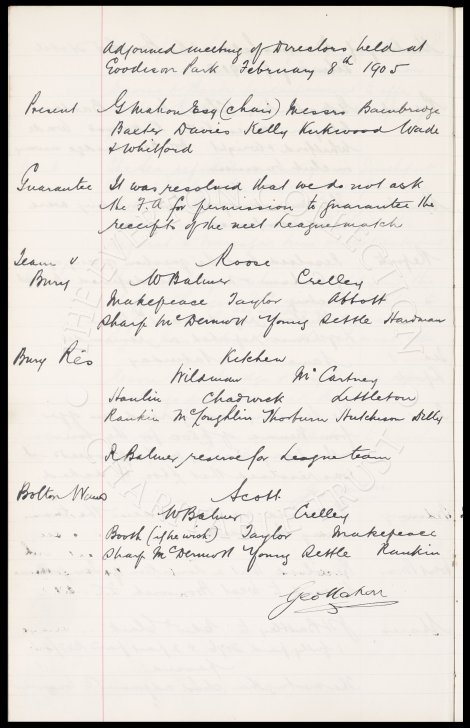 Adjourned meeting of Directors held at
Goodison Park February 8th 1905
Present G Mahon Esq (chair) Messrs Bainbridge
Baxter Davies Kelly Kirkwood Wade
& Whitford
Guarantee It was resolved that we do not ask
the F.A for permission to guarantee the
receipts of the next League match
Team v Roose
Bury W Balmer Crelley
Makepeace Taylor Abbott
Sharp McDermott Young Settle Hardman
Bury Res Kitchen
Wildman McCartney
Hanlin Chadwick Littleton
Rankin McLoughlin Thorburn Hutchison Dilly
R Balmer reserve for League team
Bolton Wans Scott
W Balmer Crelley
Booth (if he wish) Taylor Makepeace
Sharp McDermott Young Settle Rankin
Geo Mahon